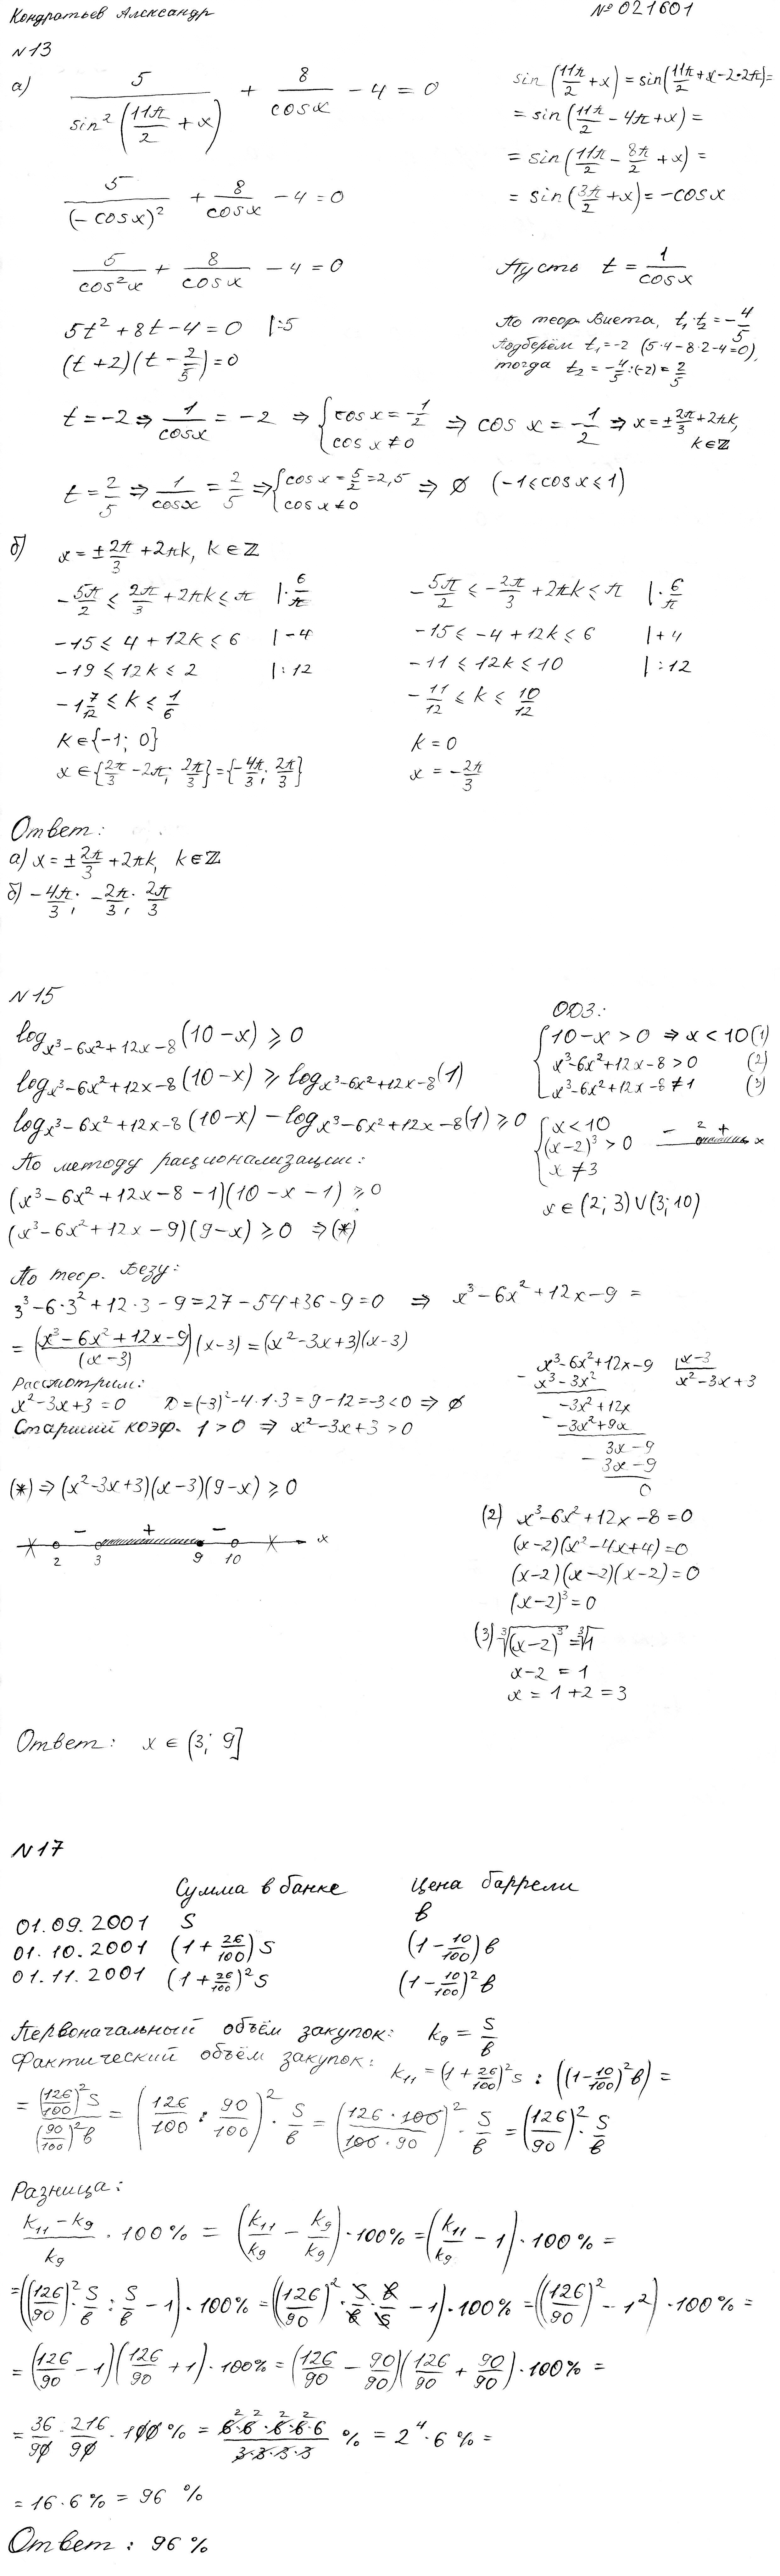 Кондратьев Александр № 021601
№13
а) 5/(sin²(11π/2 + x)) + 8/cosx − 4 = 0
sin(11π/2 + x) = sin(11π/2 + x − 2·2π) =
= sin(11π/2 − 4π + x) =
= sin(11π/2 − 8π/2 + x) =
= sin(3π/2 + x) = −cosx
5/(−cosx)² + 8/cosx − 4 = 0
5/cos²x + 8/cosx − 4 = 0
Пусть t = 1/cosx
5t² + 8t − 4 = 0 |:5
(t + 2)(t − 2/5) = 0
По теор. Виета, t₁·t₂ = −4/5
Подберём t₁ = −2 (5·4 − 8·2 − 4 = 0),
тогда t₂ = −4/5 : (−2) = 2/5
t = −2 ⇒ 1/cosx = −2 ⇒ {cosx = −1/2; cosx ≠ 0 ⇒ cosx = −1/2 ⇒ x = ±2π/3 + 2πk, k∈ℤ
t = 2/5 ⇒ 1/cosx = 2/5 ⇒ {cosx = 5/2 = 2,5; cosx ≠ 0 ⇒ ∅ (−1 ≤ cosx ≤ 1)
б) x = ±2π/3 + 2πk, k∈ℤ
−5π/2 ≤ 2π/3 + 2πk ≤ π |·6/π
−15 ≤ 4 + 12k ≤ 6 |−4
−19 ≤ 12k ≤ 2 |:12
−1 7/12 ≤ k ≤ 1/6
k∈{−1; 0}
x∈{2π/3 − 2π; 2π/3} = {−4π/3; 2π/3}
−5π/2 ≤ −2π/3 + 2πk ≤ π |·6/π
−15 ≤ −4 + 12k ≤ 6 |+4
−11 ≤ 12k ≤ 10 |:12
−11/12 ≤ k ≤ 10/12
k = 0
x = −2π/3
Ответ:
а) x = ±2π/3 + 2πk, k∈ℤ
б) −4π/3; −2π/3; 2π/3
№15
log_{x³−6x²+12x−8}(10−x) ⩾ 0
log_{x³−6x²+12x−8}(10−x) ⩾ log_{x³−6x²+12x−8}(1)
log_{x³−6x²+12x−8}(10−x) − log_{x³−6x²+12x−8}(1) ⩾ 0
ОДЗ:
{10−x > 0 ⇒ x < 10 (1)
x³−6x²+12x−8 > 0 (2)
x³−6x²+12x−8 ≠ 1 (3)
{x < 10
(x−2)³ > 0 − 2 + x
x ≠ 3
x∈(2; 3)∪(3; 10)
По методу рационализации:
(x³−6x²+12x−8−1)(10−x−1) ⩾ 0
(x³−6x²+12x−9)(9−x) ⩾ 0 ⇒ (*)
По теор. Безу:
3³−6·3²+12·3−9 = 27−54+36−9 = 0 ⇒ x³−6x²+12x−9 =
= ((x³−6x²+12x−9)/(x−3))(x−3) = (x²−3x+3)(x−3)
Рассмотрим:
x²−3x+3 = 0 D = (−3)²−4·1·3 = 9−12 = −3 < 0 ⇒ ∅
Старший коэф. 1 > 0 ⇒ x²−3x+3 > 0
x³−6x²+12x−9 | x−3
− x³−3x² x²−3x+3
−3x²+12x
− −3x²+9x
3x−9
− 3x−9
0
(*) ⇒ (x²−3x+3)(x−3)(9−x) ⩾ 0
− + − x
2 3 9 10
(2) x³−6x²+12x−8 = 0
(x−2)(x²−4x+4) = 0
(x−2)(x−2)(x−2) = 0
(x−2)³ = 0
(3) ∛(x−2)³ = ∛1
x−2 = 1
x = 1+2 = 3
Ответ: x∈(3; 9]
№17
Сумма в банке Цена баррели
01.09.2001 S b
01.10.2001 (1 + 26/100)S (1 − 10/100)b
01.11.2001 (1 + 26/100)²S (1 − 10/100)²b
Первоначальный объём закупок: k₉ = S/b
Фактический объём закупок: k₁₁ = (1 + 26/100)²S : ((1 − 10/100)²b) =
= ((126/100)²S)/((90/100)²b) = (126/100 : 90/100)² · S/b = ((126·100)/(100·90))² · S/b = (126/90)² · S/b
Разница:
(k₁₁ − k₉)/k₉ · 100% = (k₁₁/k₉ − k₉/k₉)·100% = (k₁₁/k₉ − 1)·100% =
= ((126/90)² · S/b : S/b − 1)·100% = ((126/90)² · S/b · b/S − 1)·100% = ((126/90)² − 1²)·100% =
= (126/90 − 1)(126/90 + 1)·100% = (126/90 − 90/90)(126/90 + 90/90)·100% =
= 36/90 · 216/90 · 100% = (6·6·6·6·6)/(3·3·3·3) % = 2⁴·6% =
= 16·6% = 96 %
Ответ: 96%